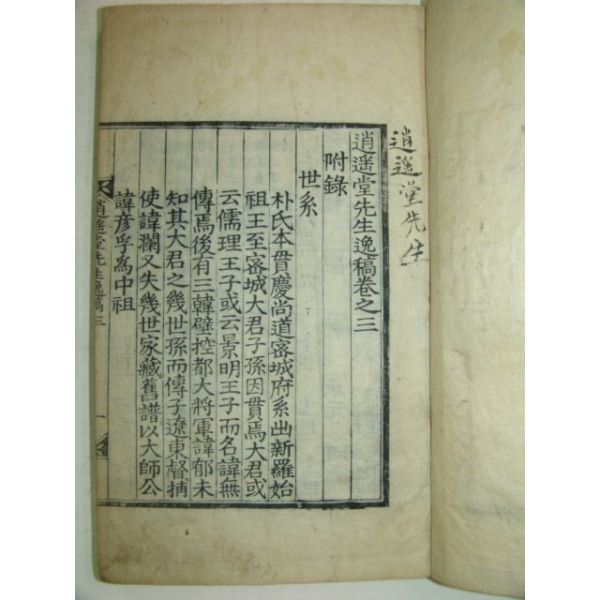 逍遥堂先生
逍遥堂先生逸稿卷之三
附錄
世系
朴氏本貫慶尚道密城府系出新羅始
祖王至密城大君子孫因貫焉大君或
云儒理王子或云景明王子而名諱無
傳焉後有三韓壁控都大將軍諱郁未
知其大君之幾世孫而傳子遼東督捕
使諱瀾又失幾世家藏舊譜以大師公
諱彦孚為中祖
逍遥堂先生逸稿三
一